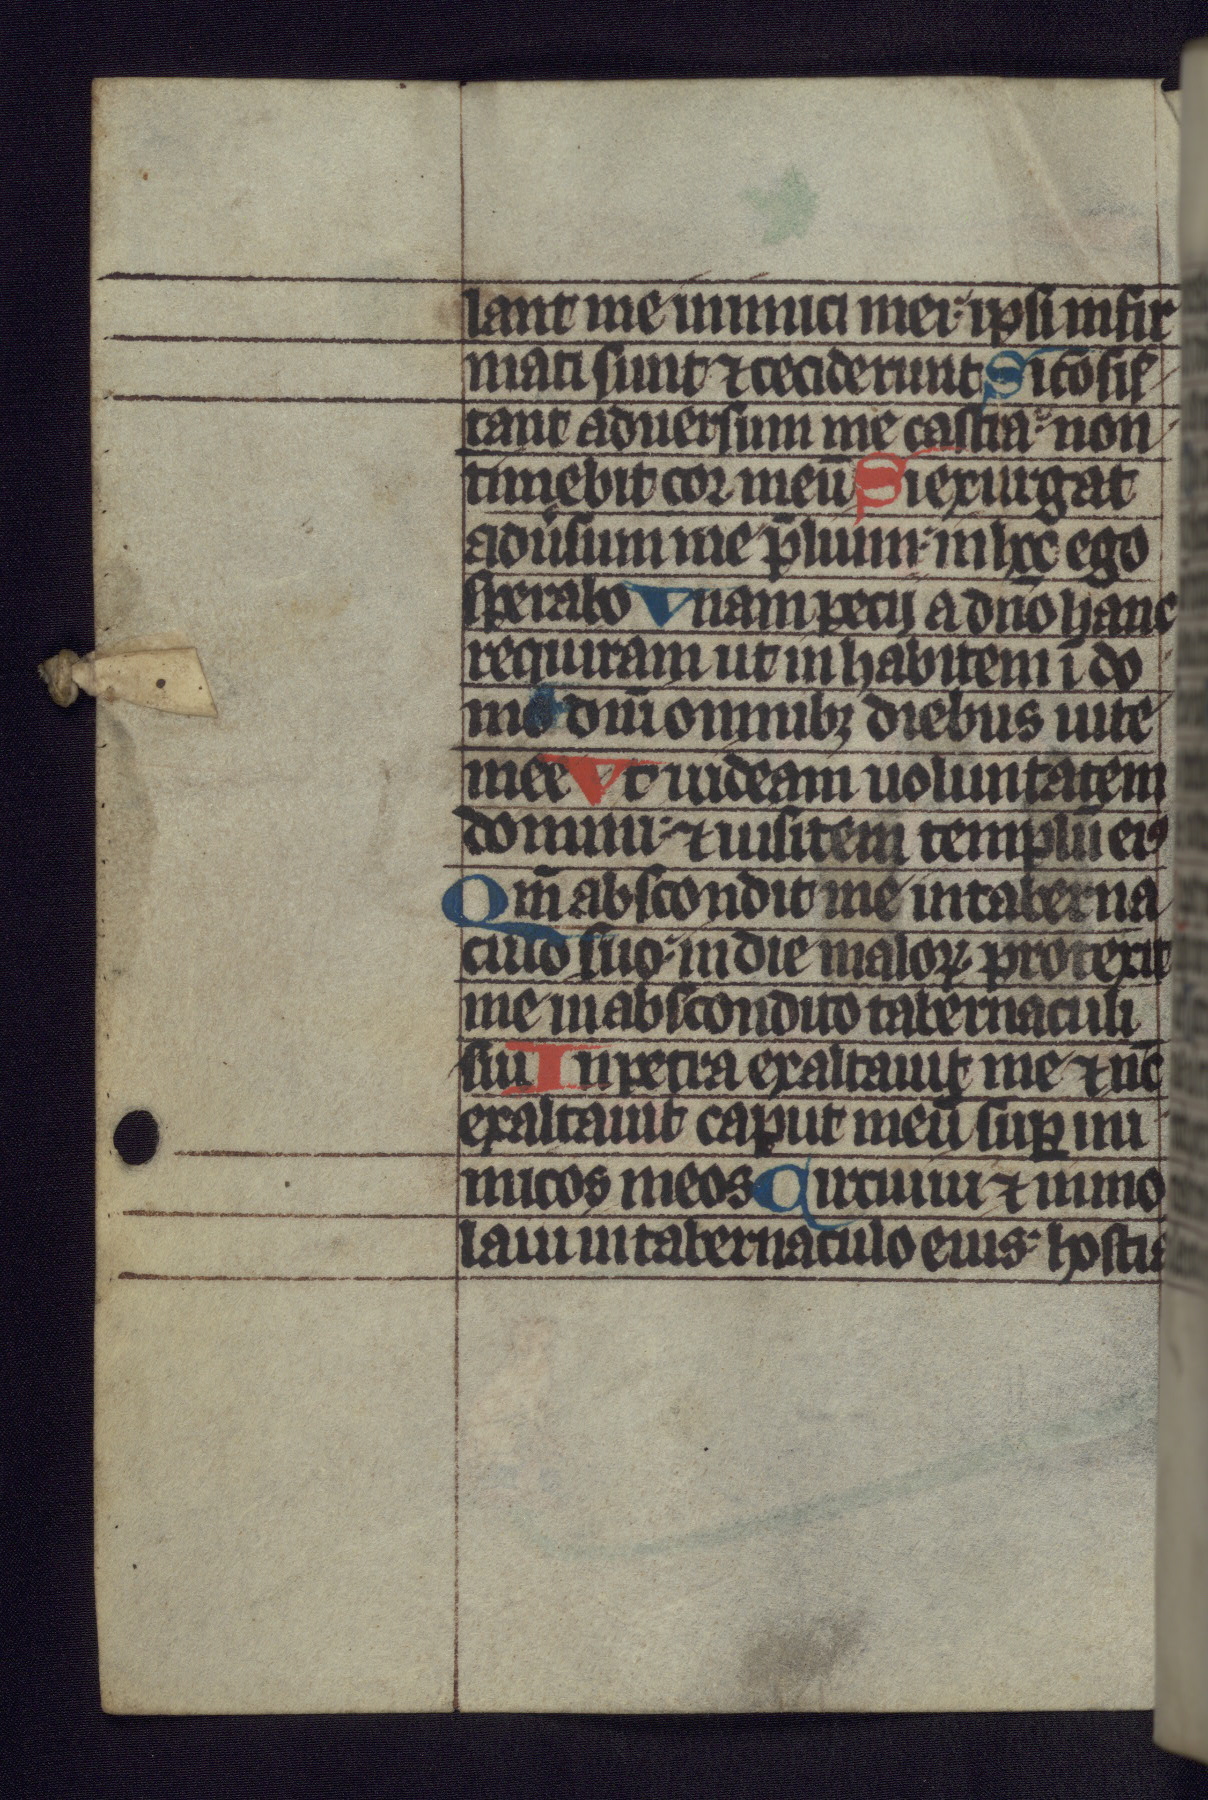 lant me inimici mei· ipsi infir
mati sunt ⁊ ceciderunt Si co͂sis
tant aduersum me castra· non
timebit cor meū Si exurgat
adu̾sum me p̄lium· in hͦc ego
sperabo Vnam pecij a dn̄o hanc
requiram ut inhabitem ī do
mo dn̄i omnibꝫ diebus uite
mee Vt uideam uoluntatem
domini· ⁊ uisitem templū eiꝰ
Qm̄ abscondit me in taberna
culo suo· in die maloꝝ protexit
me in abscondito tabernaculi
sui In petra exaltauit me ⁊ nc̄
exaltauit caput meū suꝑ ini
micos meos Circuiui ⁊ immo
laui in tabernaculo eius· hostiā